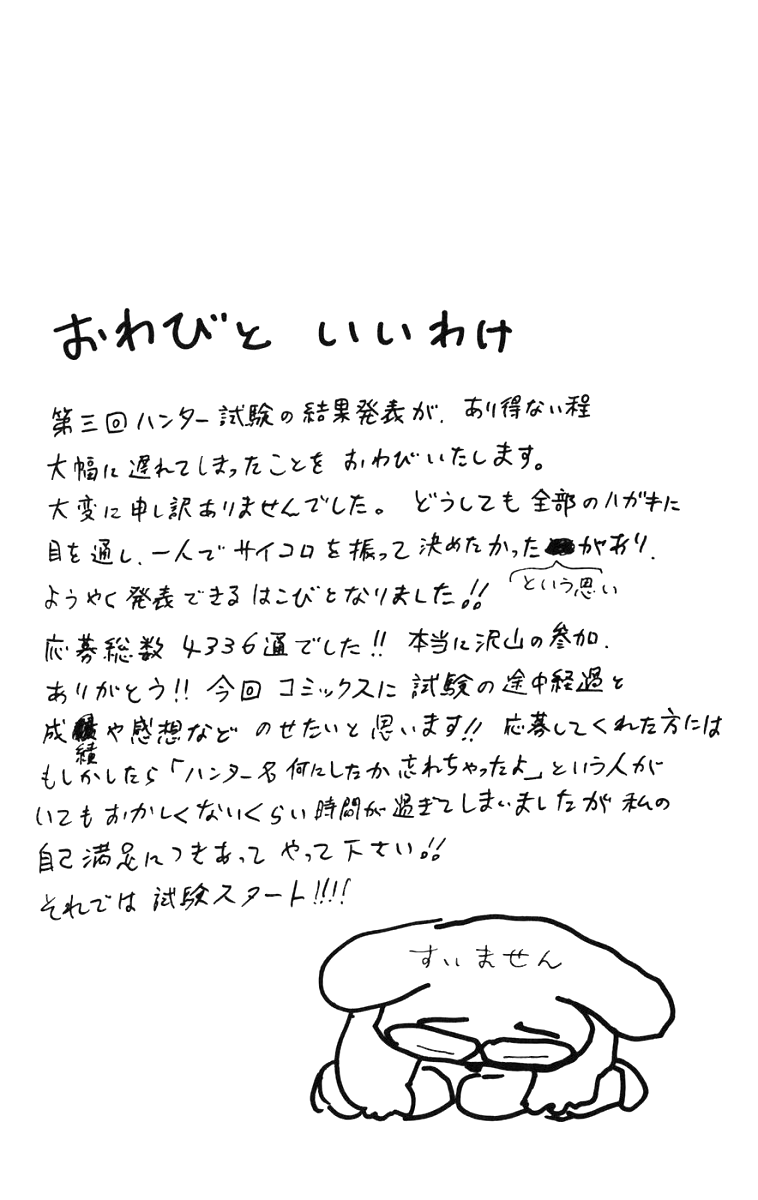 おわびと いいわけ
第三回ハンター試験の結果発表が、あり得ない程
大幅に遅れてしまったことを おわびいたします。
大変に申し訳ありませんでした。 どうしても全部のハガキに
目を通し、一人でサイコロを振って決めたかったがあり、
という思い
ようやく発表できるはこびとなりました!!
応募総数 4336通でした!! 本当に沢山の参加、
ありがとう!! 今回 コミックスに試験の途中経過と
成績や感想など のせたいと思います!! 応募してくれた方には
もしかしたら「ハンター名何にしたか忘れちゃったよ」という人が
いてもおかしくないくらい時間が過ぎてしまいましたが 私の
自己満足につきあって やって下さい!!
それでは 試験スタート!!!!
すいません